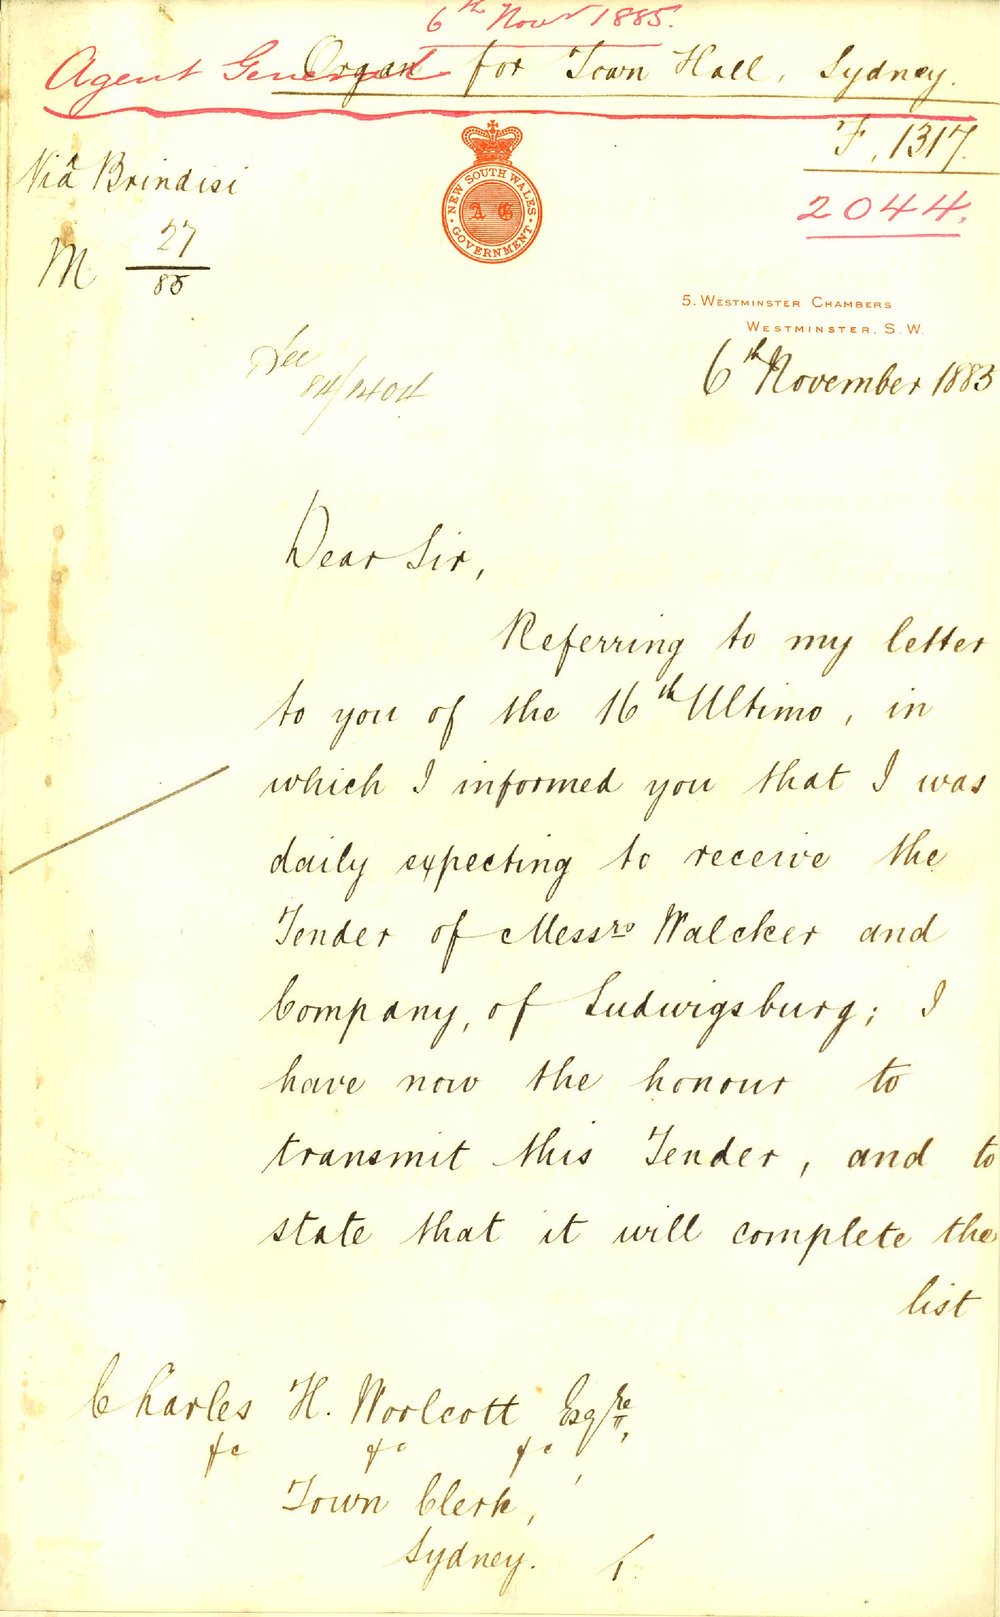 6th Novr 1885.
Agent General
Organ for Town Hall, Sydney.
F. 1317.
2044.
Viâ Brindisi
M 27/85
NEW SOUTH WALES
A G
GOVERNMENT
5. WESTMINSTER CHAMBERS
WESTMINSTER. S.W.
See
84/1404
6th November 1885
Dear Sir,
Referring to my letter
to you of the 16th Ultimo, in
which I informed you that I was
daily expecting to receive the
Tender of Messrs Walcker and
Company, of Ludwigsburg; I
have now the honour to
transmit this Tender, and to
state that it will complete the
list
Charles H. Woolcott Esqre,
&c &c &c
Town Clerk,
Sydney.